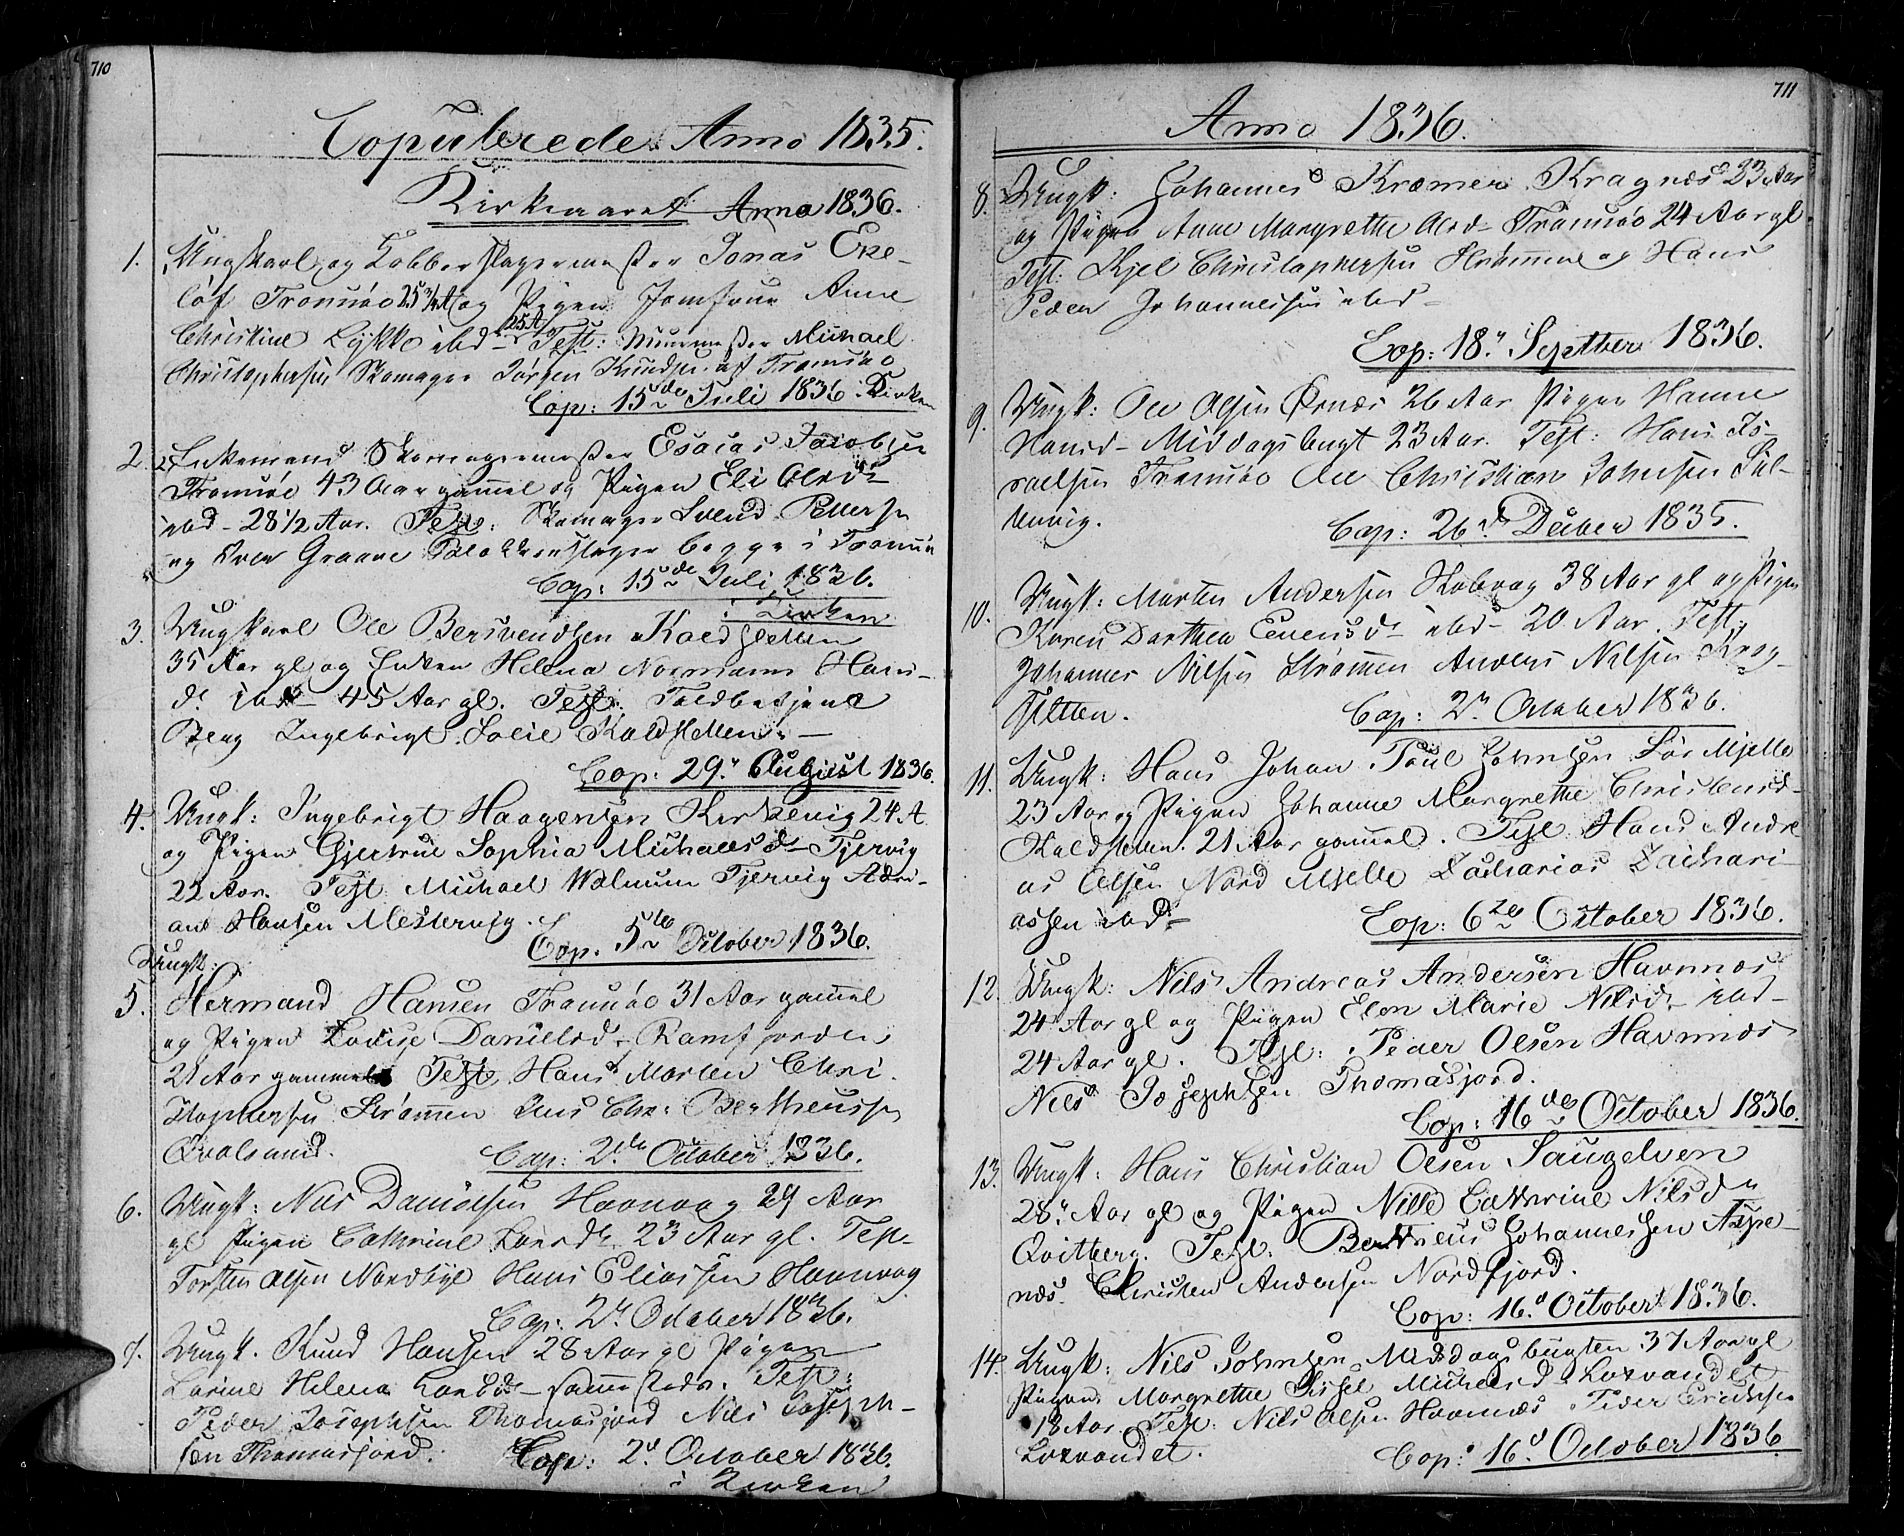 710
Copulerede Anno 1835.
Kirkeaaret Anno 1836.
1. Ungkarl og Kobberslagermester Jonas Eke-
løf Tromsøe 25 3/4 A og Pigen Jomfrue Anne
Christine Lykke ibd 25 A Test: Muurmester Michael
Christophersen Skomager Jørgen Knudsen af Tromsøe
Cop: 15de Juli 1836. Kirken
2. Enkemand Skomagermester Esaias Jacobsen
Tromsøe 43 Aar gamel og Pigen Eli Olsd
ibd- 28 1/2 Aar. Test: Skomager Svend Pettersen
og Iver Graave begge i Tromsøe
Cop: 15de Juli 1836.
i Kirken
3. Ungkarl Ole Bersvendsen Kaldsletten
35 Aar gl og Enken Helena Normanns Hans-
dr ibd 45 Aar gl. Test: Toldbetjent
Berg Ingebrigt Kaldsletten. -
Cop: 29. August 1836.
4. Ungk: Ingebrigt Haagensen Kirkevig 24 A
og Pigen Gjertrue Sophia Michaelsd- Tjervig
22 Aar. Test Michael Wolmum Tjervig Adri-
ane Hansen Mestervig.
Cop. 5te October 1836.
Ungk:
5. Hermand Hansen Tromsøe 31 Aar gammel
og Pigen Lovise Danielsd. Ramfjorden
21 Aar gammel Test. Hans Morten Chri-
stophersen Strømmen Jens Chr: Bertheussen
Qvalsund.
Cop: 2de October 1836.
6. Ungk: Nils Danielsen Havnvog 29 Aar
gl Pigen Cathrine Larsdr 23 Aar gl. Test-
Torsten Olsen Nordbye Hans Eliassen Havnvog
Cop: 2de October 1836.
7. Ungk. Knud Hansen 28 Aar gl Pigen
Larine Helena Larsd- sammesteds. Test:
Peder Josephsen Thomasjord Nils Joseph-
sen Thomasjord.
Cop: 2d October 1836.
i Kirken
711
Anno 1836.
8. Ungk: Johannes Kræmer Kragnæs 23 Aar
og Pigen Anne Margrethe Olsd- Tromsøe 24 Aar gl
Test: Kjel Christophersen Strømmen og Hans
Peder Johannessen ibd-
Cop: 18. Septber 1836.
9. Ungk: Ole Olsen Ørnæs 26 Aar Pigen Hanne
Hansd- Middagsbugt 23 Aar. Test: Hans Is-
raelsen Tromsøe Ole Christian Johnsen Sol-
tenvig.
Cop: 26d Decber 1835.
10. Ungk: Morten Andersen Skolvog 38 Aar gl og Pigen
Karen Dorthea Evensd- ibd- 20 Aar. Test:
Johannes Nilsen Strømmen Anders Nilsen Krog-
sletten.
Cop: 2n October 1836.
11. Ungk: Hans Johan Poul Johnsen Sør Mjelle
23 Aar og Pigen Johanne Margrethe Christensd-
Kaldsletten. 21 Aar gammel. Test Hans Andre
as Olsen Nord Mjelle Zacharias Zachari-
assen ibd-
Cop: 6te October 1836.
12. Ungk: Nils Andreas Andersen Havnnæs
24 Aar gl og Pigen Elen Marie Nilsd- ibd-
24 Aar gl. Test: Peder Olsen Havnnæs
Nils Josephsen Thomasjord.
Cop: 16de October 1836.
13. Ungk: Hans Christian Olsen Saugelven
28 Aar gl og Pigen Nille Cathrine Nilsdr
Qvitberg. Test: Bertheus Johannessen Aspe-
næs. Christen Andersen Nordfjord.
Cop: 16d October 1836.
14. Ungk: Nils Johnsen Middagsbugten 37 Aar gl
Pigen Margrethe Sissel Michelsd- Laxvandet
18 Aar. Test: Nils Olsen Havnnæs Peder Erichsen
Laxvandet.
Cop: 16d October 1836